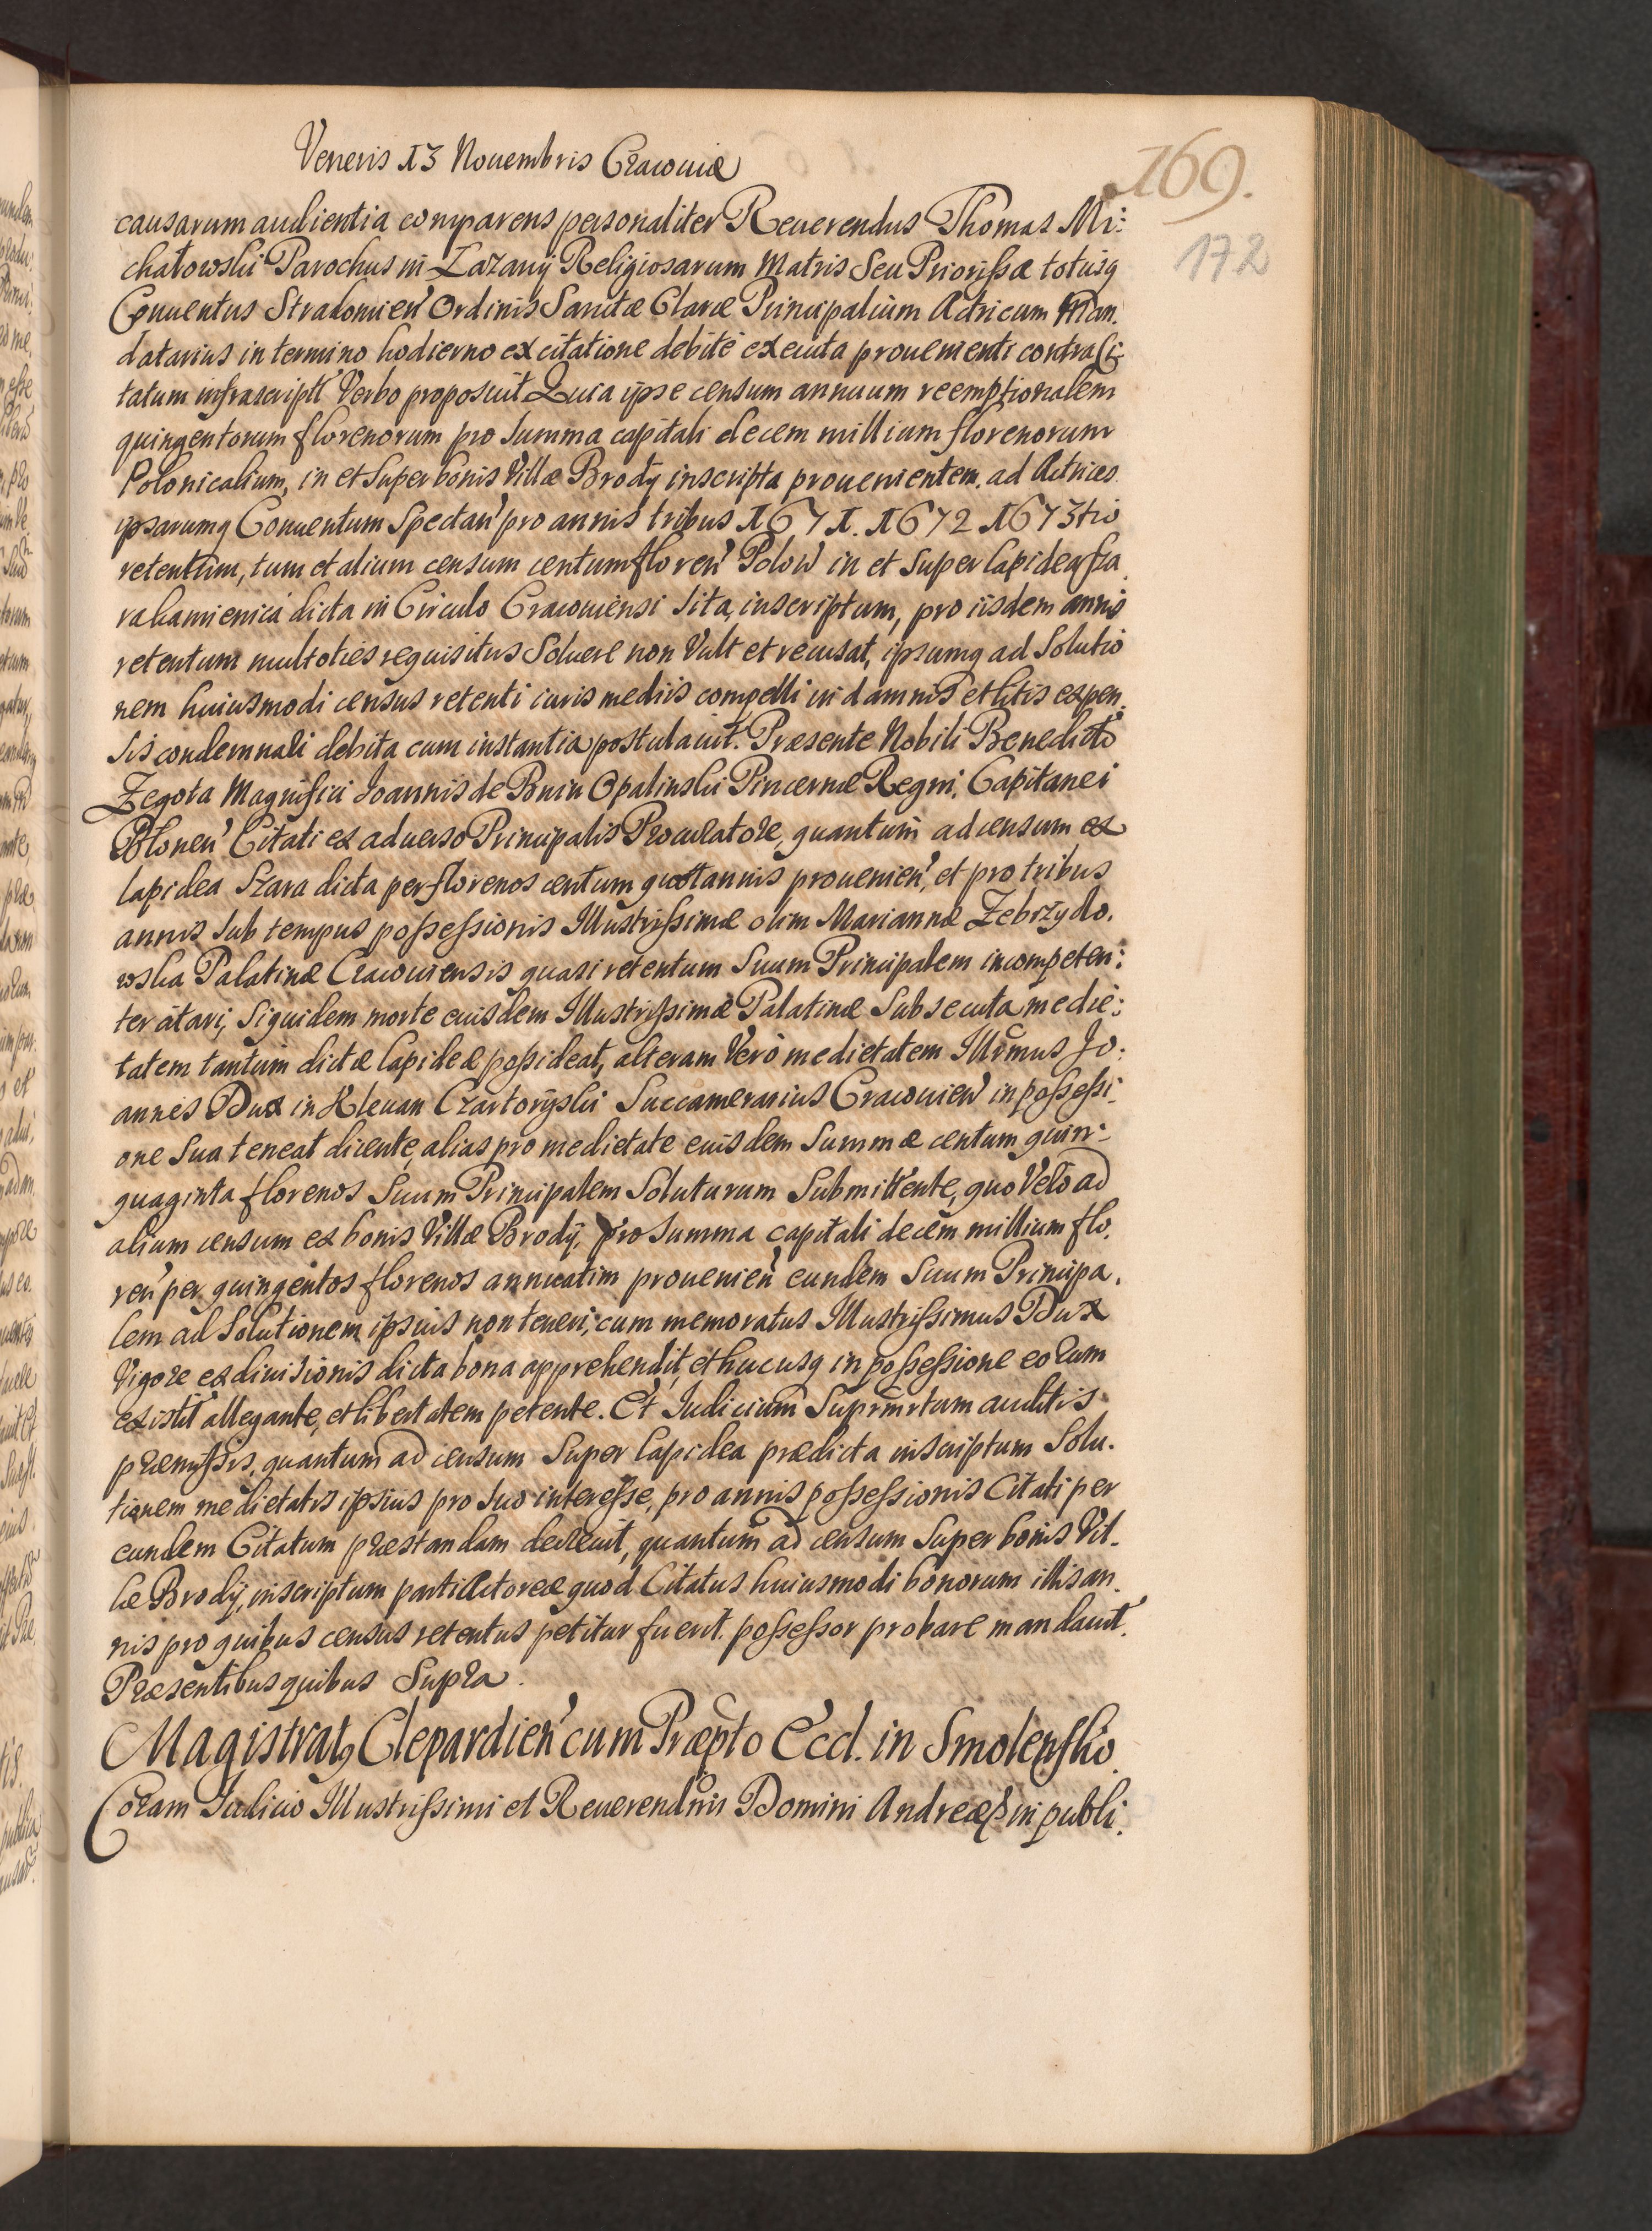 Veneris 13 Nouembris Cracouiæ
169.
172
causarum audientia comparens personaliter Reuerendus Thomas Mi:
chałowski Parochus in Łazany Religiosarum Matris Seu Priorissæ totusq
Conuentus Stradomien' Ordinis Sanctæ Claræ Principalium Actricum Man.
datarius in termino hodierno ex citatione debite executa prouenienti contra Ci:
tatum infrascript' Verbo proposuit Quia ipse censum annuum reemptionalem
quingentorum florenorum pro Summa capitali decem millium florenorum
Polonicalium, in et Super bonis Villæ Brody inscripta prouenientem, ad Actrices
ipsarumq Conuentum Spectan' pro annis tribus 1671. 1672 1673tio
retentum, tum et alium censum centum floren' Polon' in et Super lapidea Sza
rakamienica dicta in Circulo Cracouiensi Sita, inscriptum, pro iisdem annis
retentum multoties requisitus Soluere non Vult et recusat, ipsumq ad Solutio
nem huiusmodi census retenti iuris mediis compelli in damnis et litis expen.
sis condemnali debita cum instantia postulauit. Præsente Nobili Benedicto
Zegota Magnifici Joannis de Bnin Opalinski Pincernæ Regni, Capitanei
Płonen' Citati ex aduerso Principalis Procuratore, quantum ad censum ex
lapidea Szara dicta per florenos centum quottannis prouenien', et pro tribus
annis Sub tempus possessionis Illustrissimæ olim Mariannæ Zebrzydo.
wska Palatinæ Cracouiensis quasi retentum Suum Principalem incompeten:
ter citari, Siquidem morte eiusdem Illustrissimæ Palatinæ Subsecuta medie:
tatem tantum dictæ lapideæ possideat, alteram Vero medietatem Illrmus Jo:
annes Dux in Klewan Czartoryski Succamerarius Cracouien' in possessi:
one Sua teneat dicente, alias pro medietate eiusdem Summæ centum quin:
quaginta florenos Suum Principalem Soluturum Submittente, quo Vero ad
alium censum ex bonis Villæ Brody, pro Summa capitali decem millium flo.
ren' per quingentos florenos annuatim prouenien' eundem Suum Principa.
lem ad Solutionem ipsius non teneri, cum memoratus Illustrissimus Dux
Vigore exdiuisionis dicta bona apprehendit, et hucusq in possessione eorum
existit allegante, et libertatem petente. Et Iudicium Suprmrtum auditis
præmissis, quantum ad censum Super lapidea prædicta inscriptum Solu.
tionem medietatis ipsius pro Suo interesse, pro annis possessionis Citati per
eundem Citatum præstandam decreuit, quantum ad censum Super bonis Vil.
læ Brody, inscriptum parti Actoreæ quod Citatus huiusmodi bonorum illis an.
nis pro quibus census retentus petitur fuerit possessor probare mandauit.
Præsentibus quibus Supra.
Magistratq Clepardien' cum Præpto Eccl. in Smolensko
Coram Iudicio Illustrissimi et Reuerendmi Domini Andreæ & in publi.